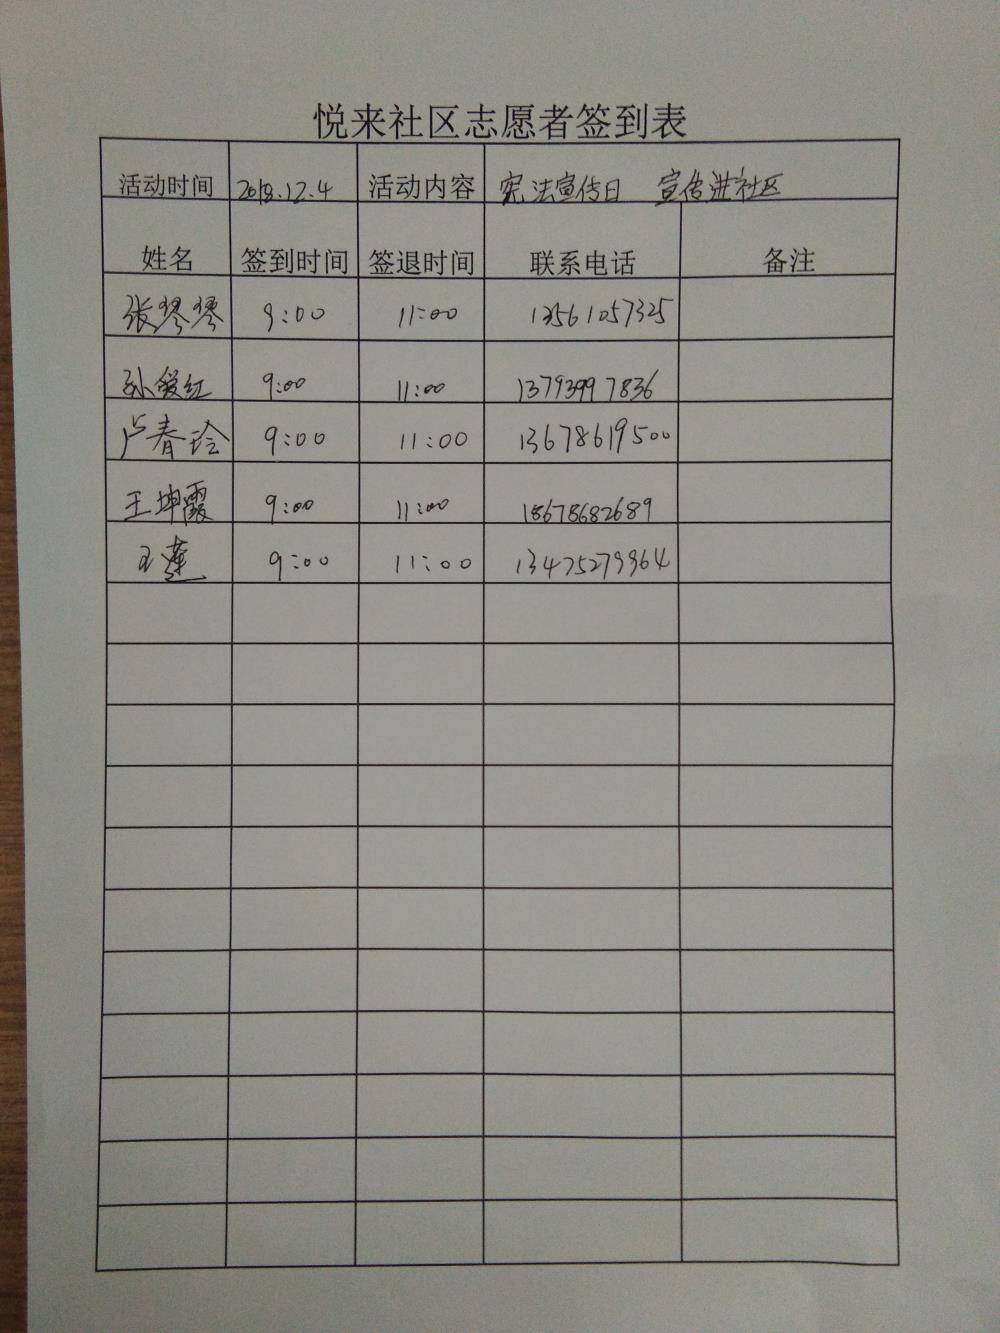 悦来社区志愿者签到表
活动时间 2018.12.4 活动内容 宪法宣传日 宣传进社区
姓名 签到时间 签退时间 联系电话 备注
张琴琴 9:00 11:00 13561057325
孙爱红 9:00 11:00 13793997836
卢春玲 9:00 11:00 13678619500
王坤霞 9:00 11:00 18678682689
王莲 9:00 11:00 13475279964